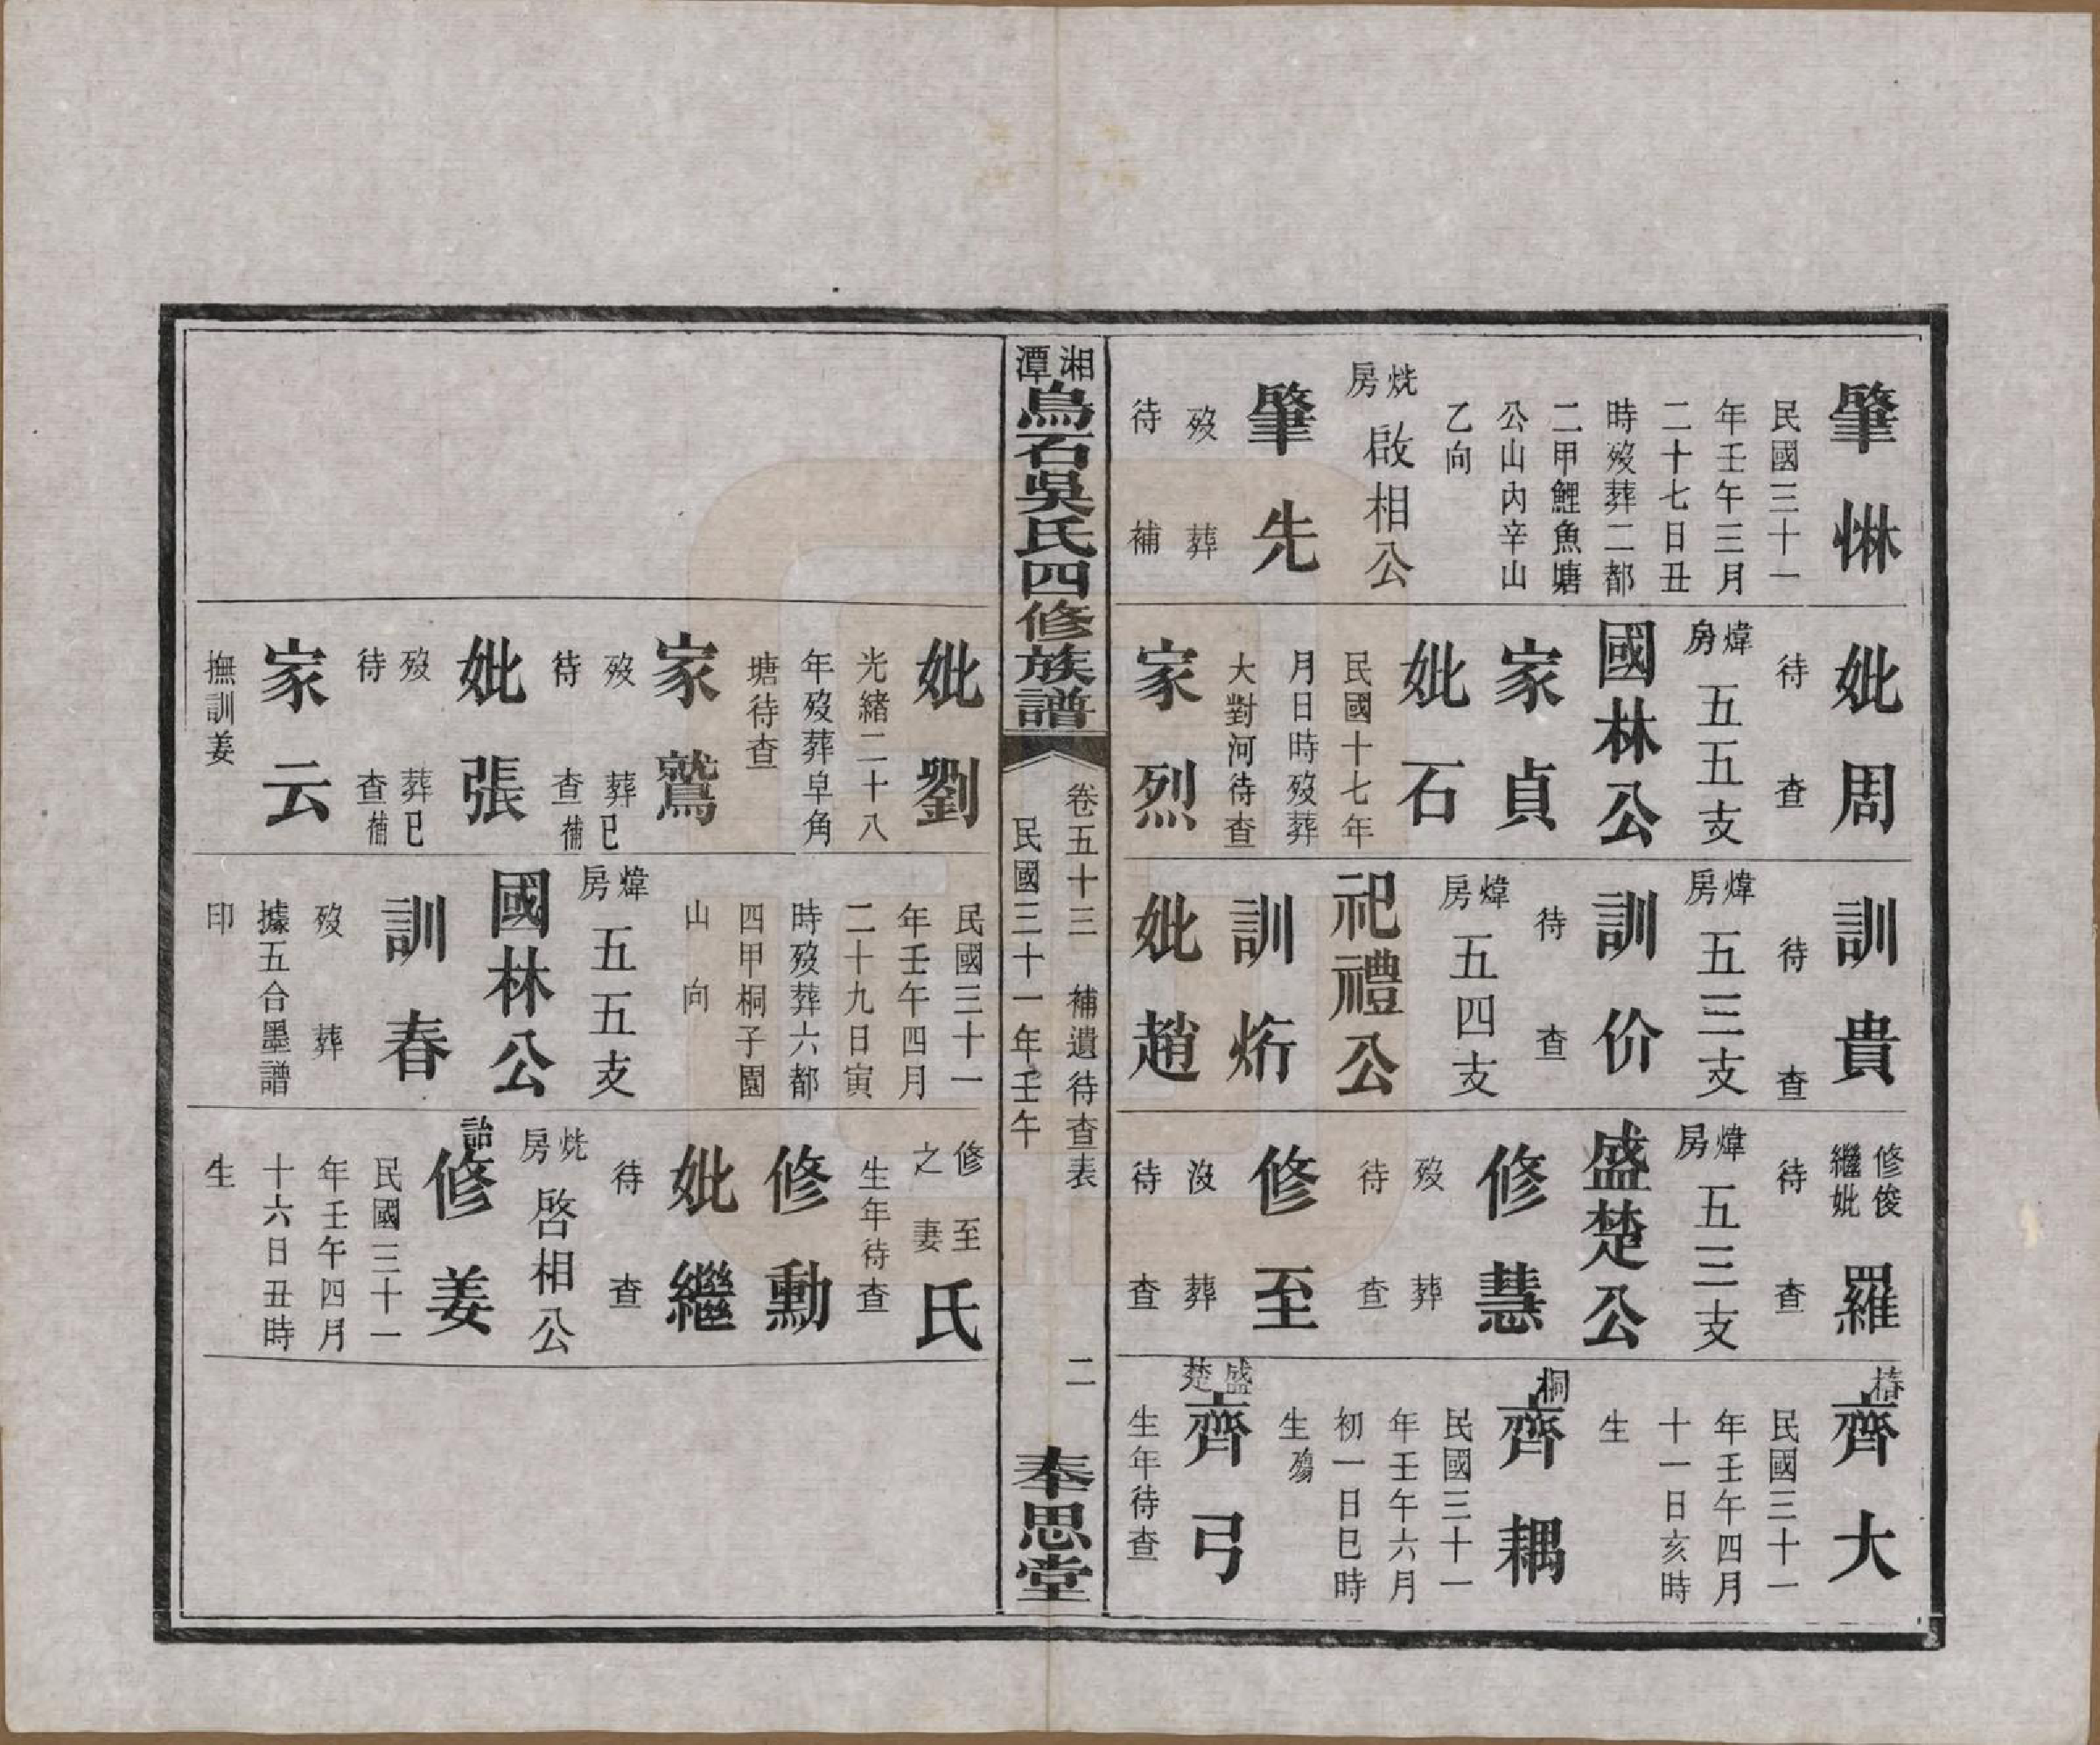 肇惏
民國三十一
年壬午三月
二十七日丑
時歿葬二都
二甲鯉魚塘
公山內辛山
乙向
烍房啟相公
肇先
歿葬
待補
妣周
待查
煒房五五支
國林公
家貞
妣石
民國十七年
月日時歿葬
大對河待查
家烈
訓貴
待查
煒房五三支
訓价
待查
煒房五四支
祀禮公
訓烆
妣趙
修俊繼妣羅
待查
煒房五三支
盛楚公
修慧
歿葬
待查
修至
沒葬
待查
椿齊大
民國三十一
年壬午四月
十一日亥時
生
桐齊耦
民國三十一
年壬午六月
初一日巳時
生殤
盛楚齊弓
生年待查
湘潭烏石吳氏四修族譜
卷五十三 補遺待查表 二
民國三十一年壬午
奉思堂
妣劉
光緒二十八
年歿葬皁角
塘待查
家鷲
歿葬已
待查補
妣張
歿葬已
待查補
家云
撫訓姜
民國三十一
年壬午四月
二十九日寅
時歿葬六都
四甲桐子園
山向
煒房五五支
國林公
訓春
歿葬
據五台墨譜
印
修至之妻氏
生年待查
修勳
妣繼
待查
烍房啓相公
詒修姜
民國三十一
年壬午四月
十六日丑時
生